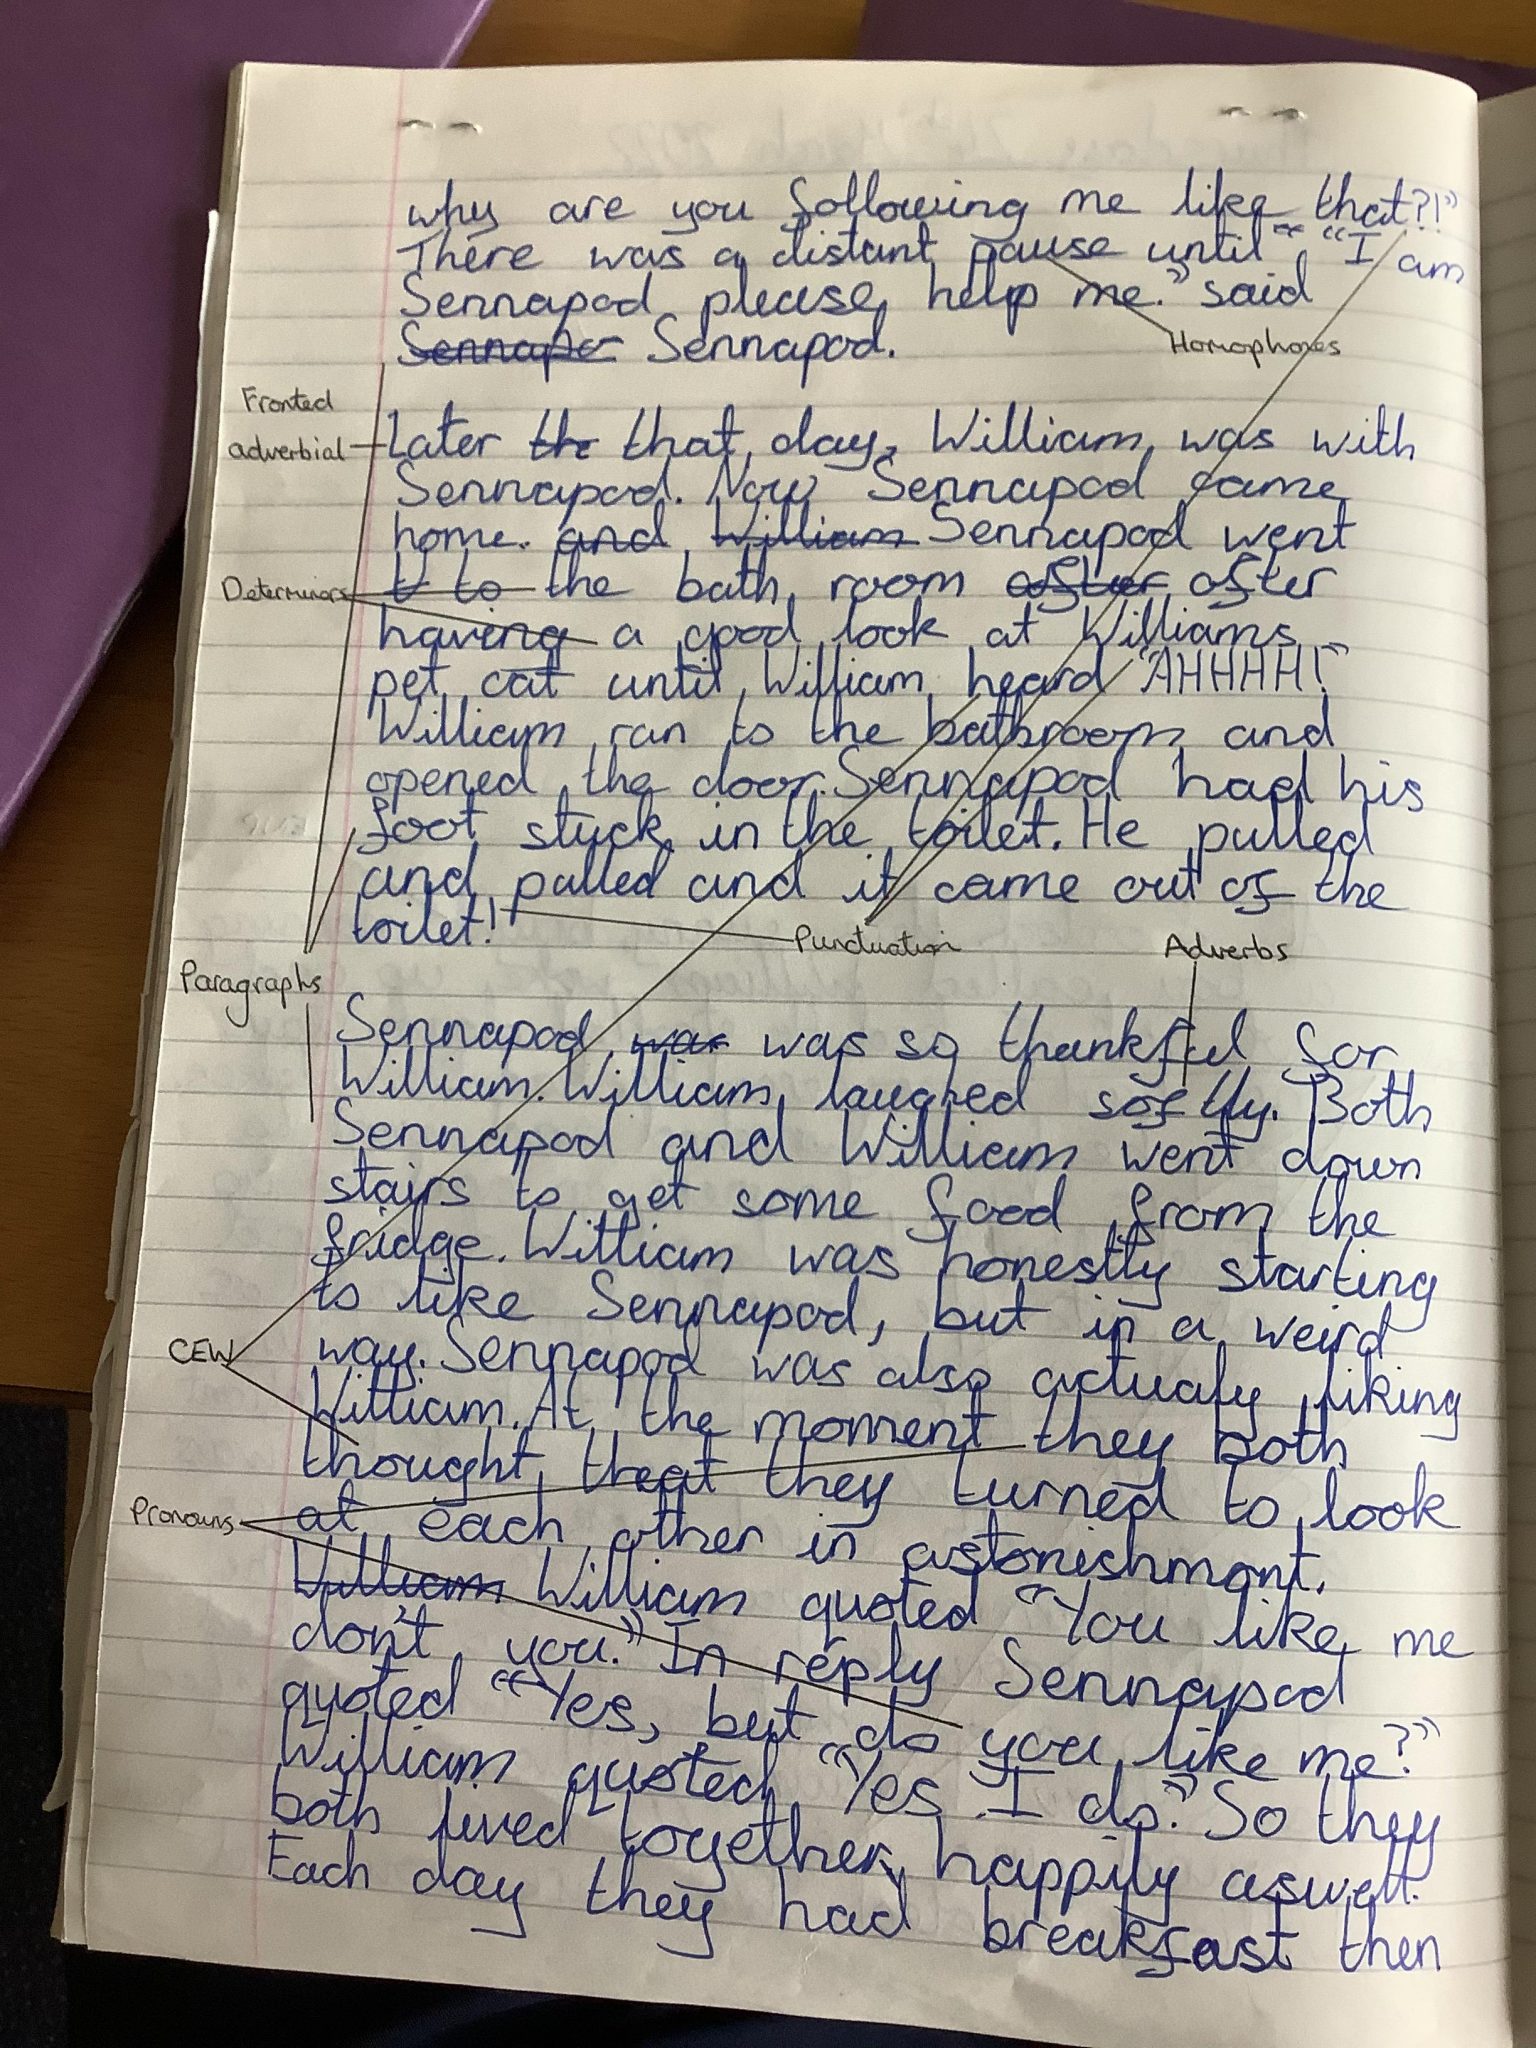 why are you following me like that?!"
There was a distant pause until "I am
Sennapod please help me." said
Sennapod.
Homophones
Fronted
adverbial
Later the that day, William was with
Sennapod. Now Sennapod came
home. and William Sennapod went
Determiners
t to the bath room after after
having a good look at Williams
pet cat until William heard "AHHHH!"
William ran to the bathroom and
opened the door. Sennapod had his
foot stuck in the toilet. He pulled
and pulled and it came out of the
toilet!
Punctuation
Adverbs
Paragraphs
Sennapod was was so thankful for
William. William laughed softly. Both
Sennapod and William went down
stairs to get some food from the
fridge. William was honestly starting
to like Sennapod, but in a weird
CEW
way. Sennapod was also actualy liking
William. At the moment they both
thought that they turned to look
Pronouns
at each other in astonishment.
William William quoted "You like me
don't you." In reply Sennapod
quoted "Yes, but do you like me?"
William quoted "Yes I do." So they
both lived together, happily aswell.
Each day they had breakfast then